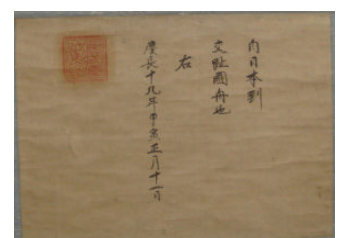 自日本到
交趾國舟也
右
慶長十九年甲寅正月十一日